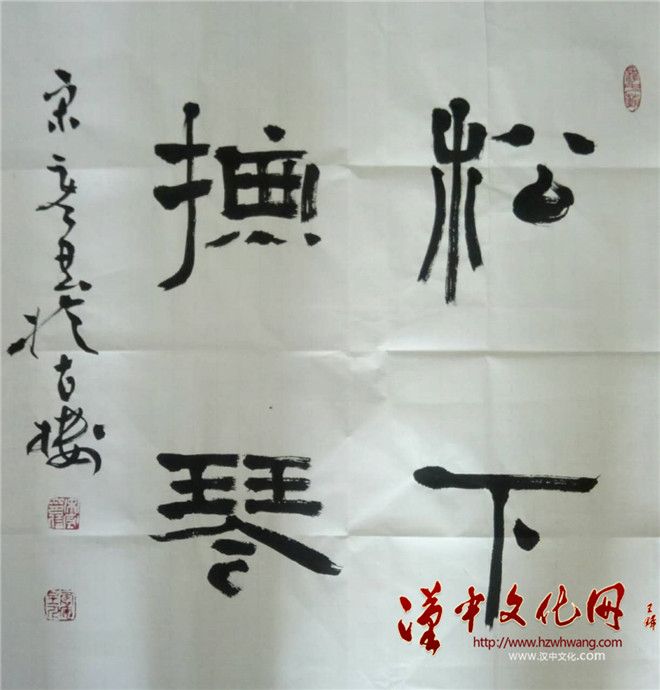 松下
撫琴
宋
於古樓
漢中文化网
http://www.hzwhwang.com
www.汉中文化.com